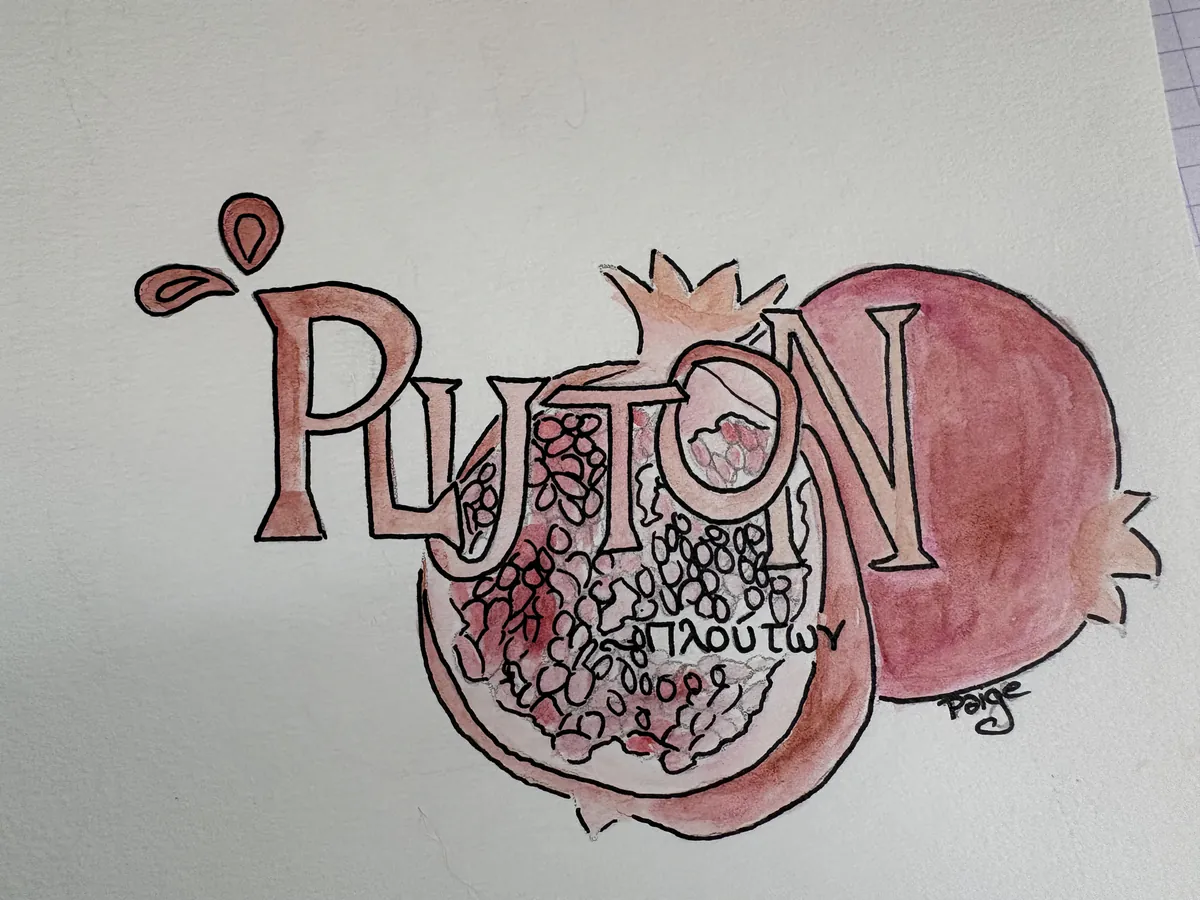 PLUTON
Πλούτων
Paige